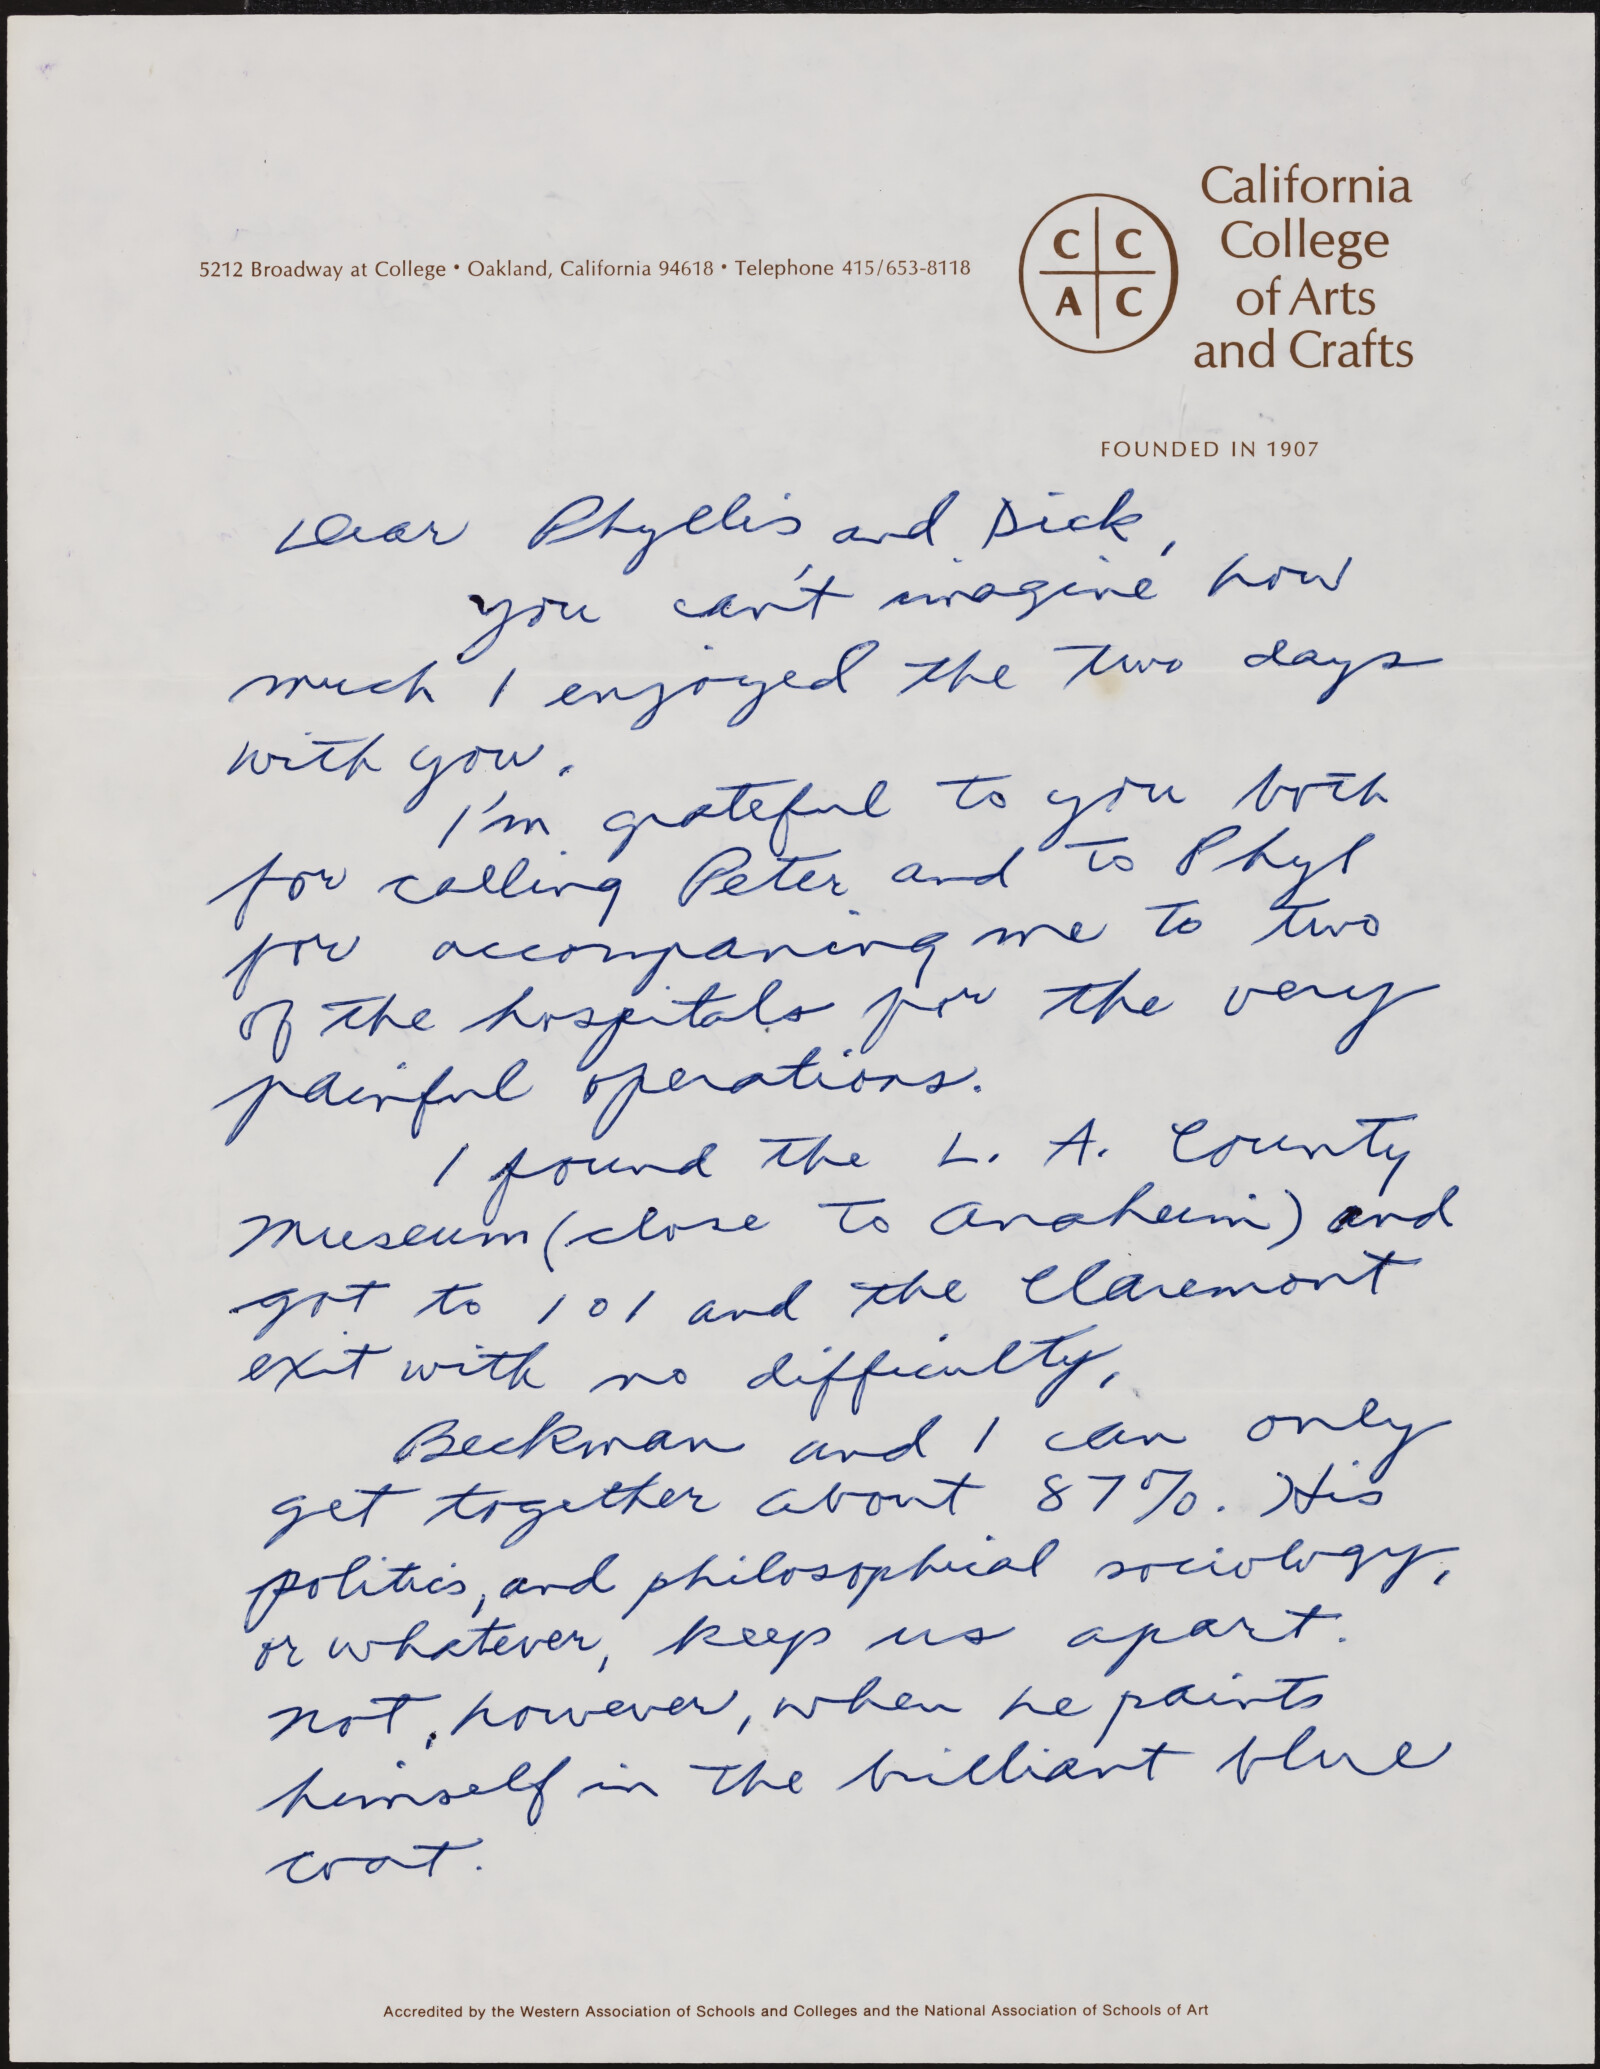 California
College
of Arts
and Crafts
C C
A C
5212 Broadway at College • Oakland, California 94618 • Telephone 415/653-8118
FOUNDED IN 1907
Dear Phyllis and Dick,
you can't imagine how
much I enjoyed the two days
with you.
I'm grateful to you both
for calling Peter and to Phyl
for accompaning me to two
of the hospitals for the very
painful operations.
I found the L. A. County
Museum (close to Anaheim) and
got to 101 and the Claremont
exit with no difficulty,
Beckman and I can only
get together about 87%. His
politics, and philosophical sociology,
or whatever, keep us apart.
Not, however, when he paints
himself in the brilliant blue
coat.
Accredited by the Western Association of Schools and Colleges and the National Association of Schools of Art